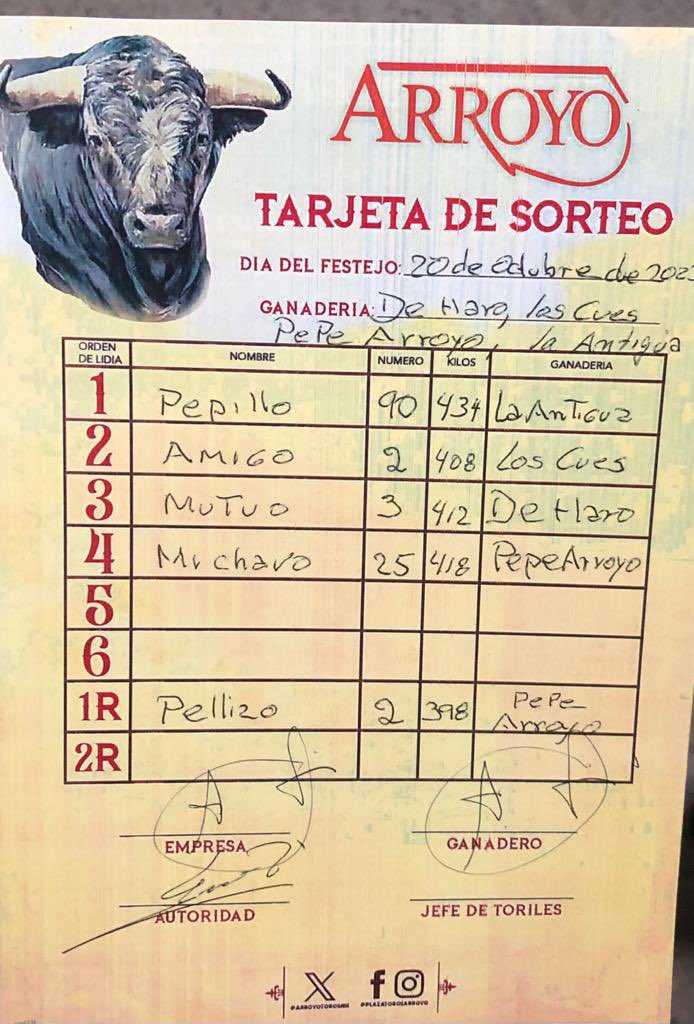 ARROYO
TARJETA DE SORTEO
DIA DEL FESTEJO: 20 de Octubre de 202
GANADERIA: De Haro, Los Cues
PePe Arroyo, la Antigua
ORDEN DE LIDIA NOMBRE NUMERO KILOS GANADERIA
1 Pepillo 90 434 La Antigua
2 AMIGO 2 408 Los Cues
3 MUTUO 3 412 De Haro
4 Mi chavo 25 418 Pepe Arroyo
5
6
1R Pellizo 2 398 PePe Arroyo
2R
EMPRESA GANADERO
AUTORIDAD JEFE DE TORILES
@ARROYOTOROSMX @PLAZATOROSARROYO